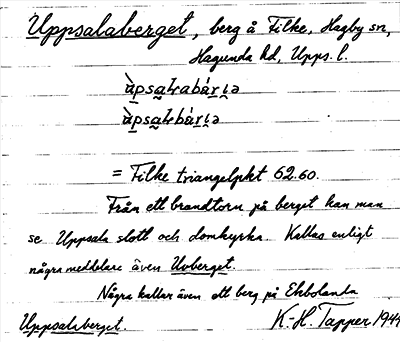 Uppsalaberget, berg å Filke, Hagby sn,
Hagunda hd, Upps. l.
= Filke triangelpkt 62.60.
Från ett brandtorn på berget kan man
se Uppsala slott och domkyrka. Kallas enligt
några meddelare även Uvberget.
Några kallar även ett berg på Ekbolanda
Uppsalaberget. K. H. Tapper 1944